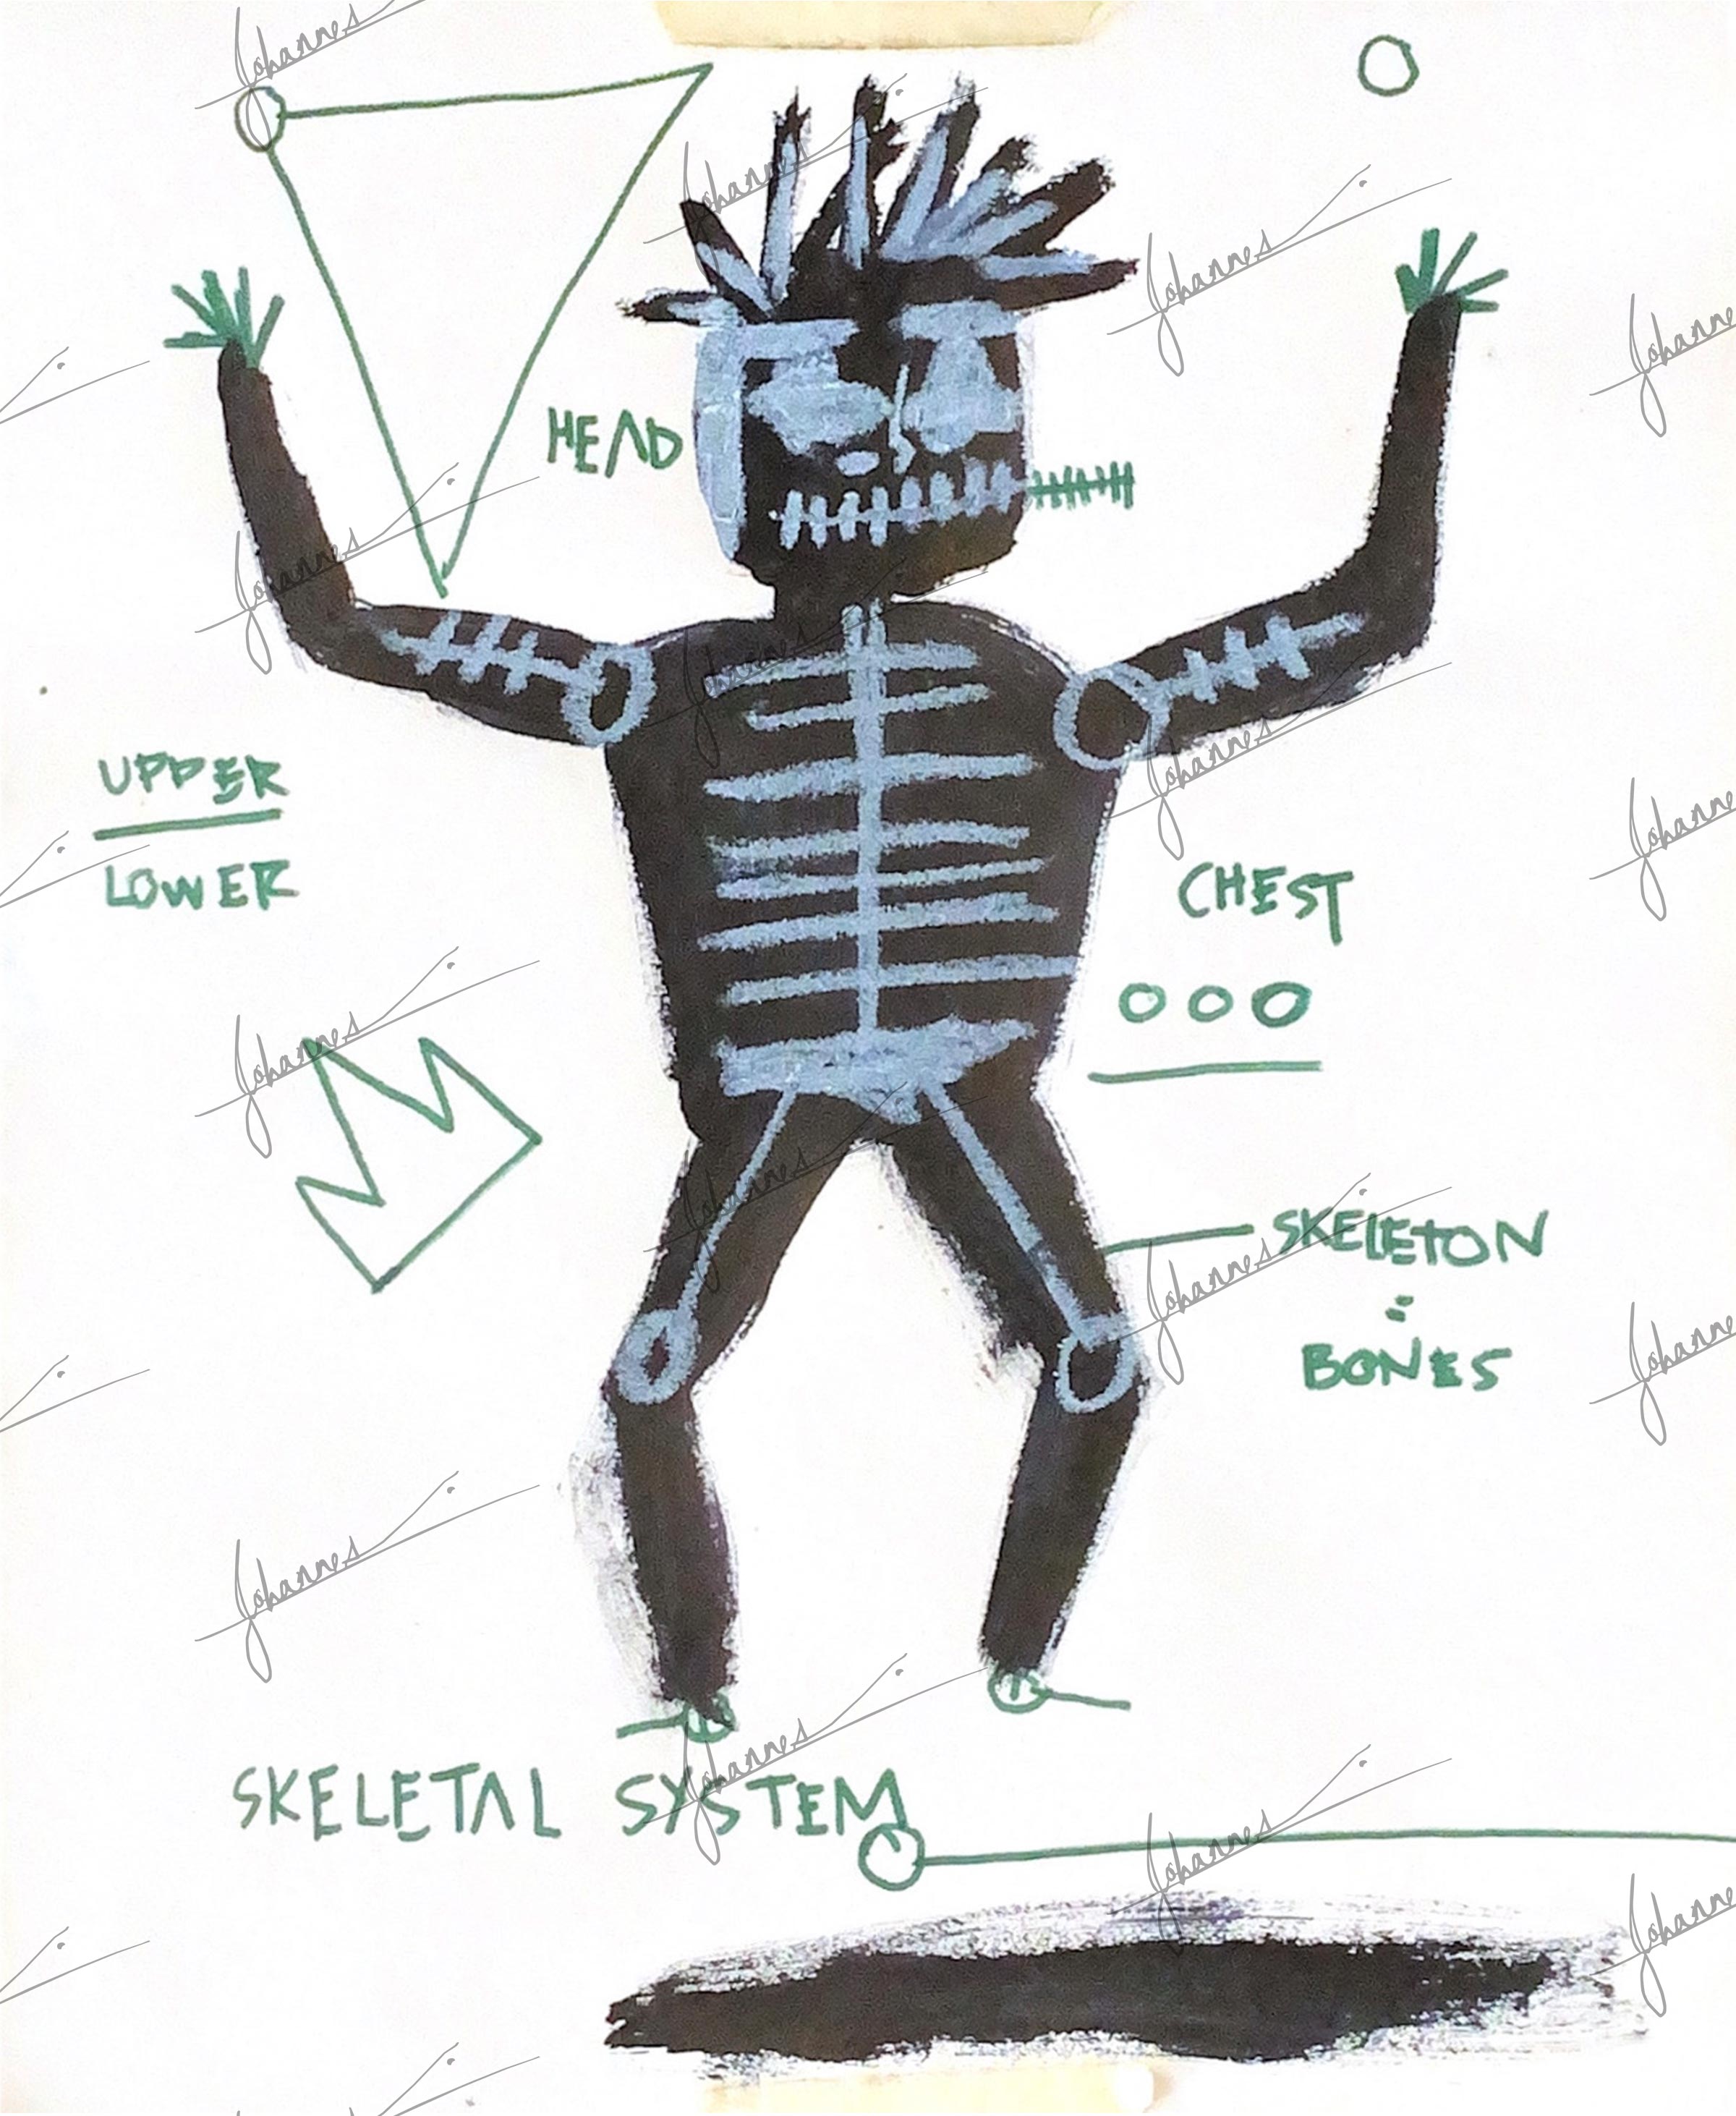 Johannes
HEAD
UPPER
LOWER
CHEST
000
SKELETON
:
BONES
SKELETAL SYSTEM